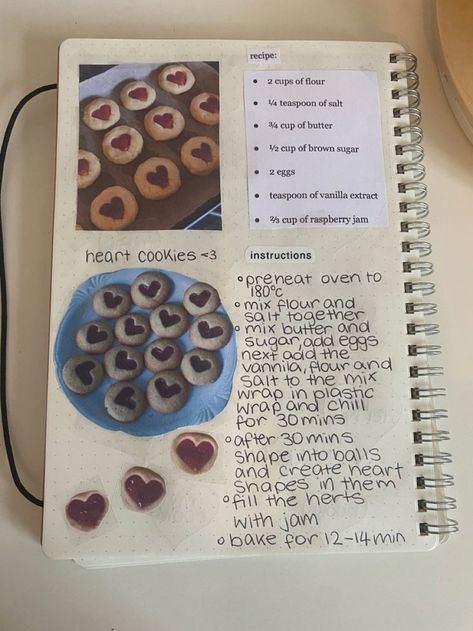 recipe:
2 cups of flour
¼ teaspoon of salt
¾ cup of butter
½ cup of brown sugar
2 eggs
teaspoon of vanilla extract
⅔ cup of raspberry jam
heart cookies <3
instructions
preheat oven to
180°c
mix flour and
salt together
mix butter and
sugar, add eggs
next add the
vannila, flour and
salt to the mix
wrap in plastic
wrap and chill
for 30 mins
after 30 mins
shape into balls
and create heart
shapes in them
fill the herts
with jam
bake for 12-14 min